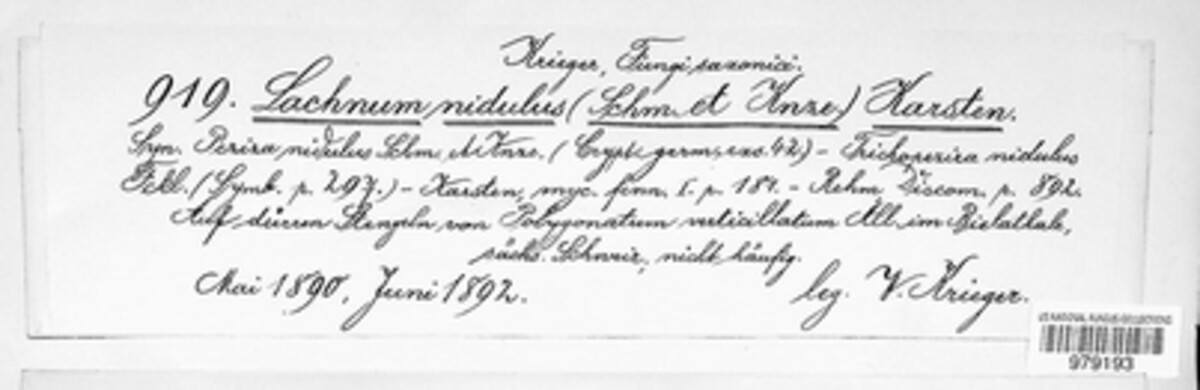 Krieger, Fungi saxonici.
919. Lachnum nidulus (Schm. et Knze) Karsten.
Syn. Peziza nidulus Schm. et Knze. (Crypt. germ. exs. 42) - Trichopeziza nidulus
Fckl. (Symb. p. 297.) - Karsten, myc. fenn. I. p. 181. - Rehm Discom. p. 892.
Auf dürren Stengeln von Polygonatum verticillatum All. im Bielathale,
sächs. Schweiz, nicht häufig.
Mai 1890, Juni 1892. leg. W. Krieger.
US NATIONAL FUNGUS COLLECTIONS
979193